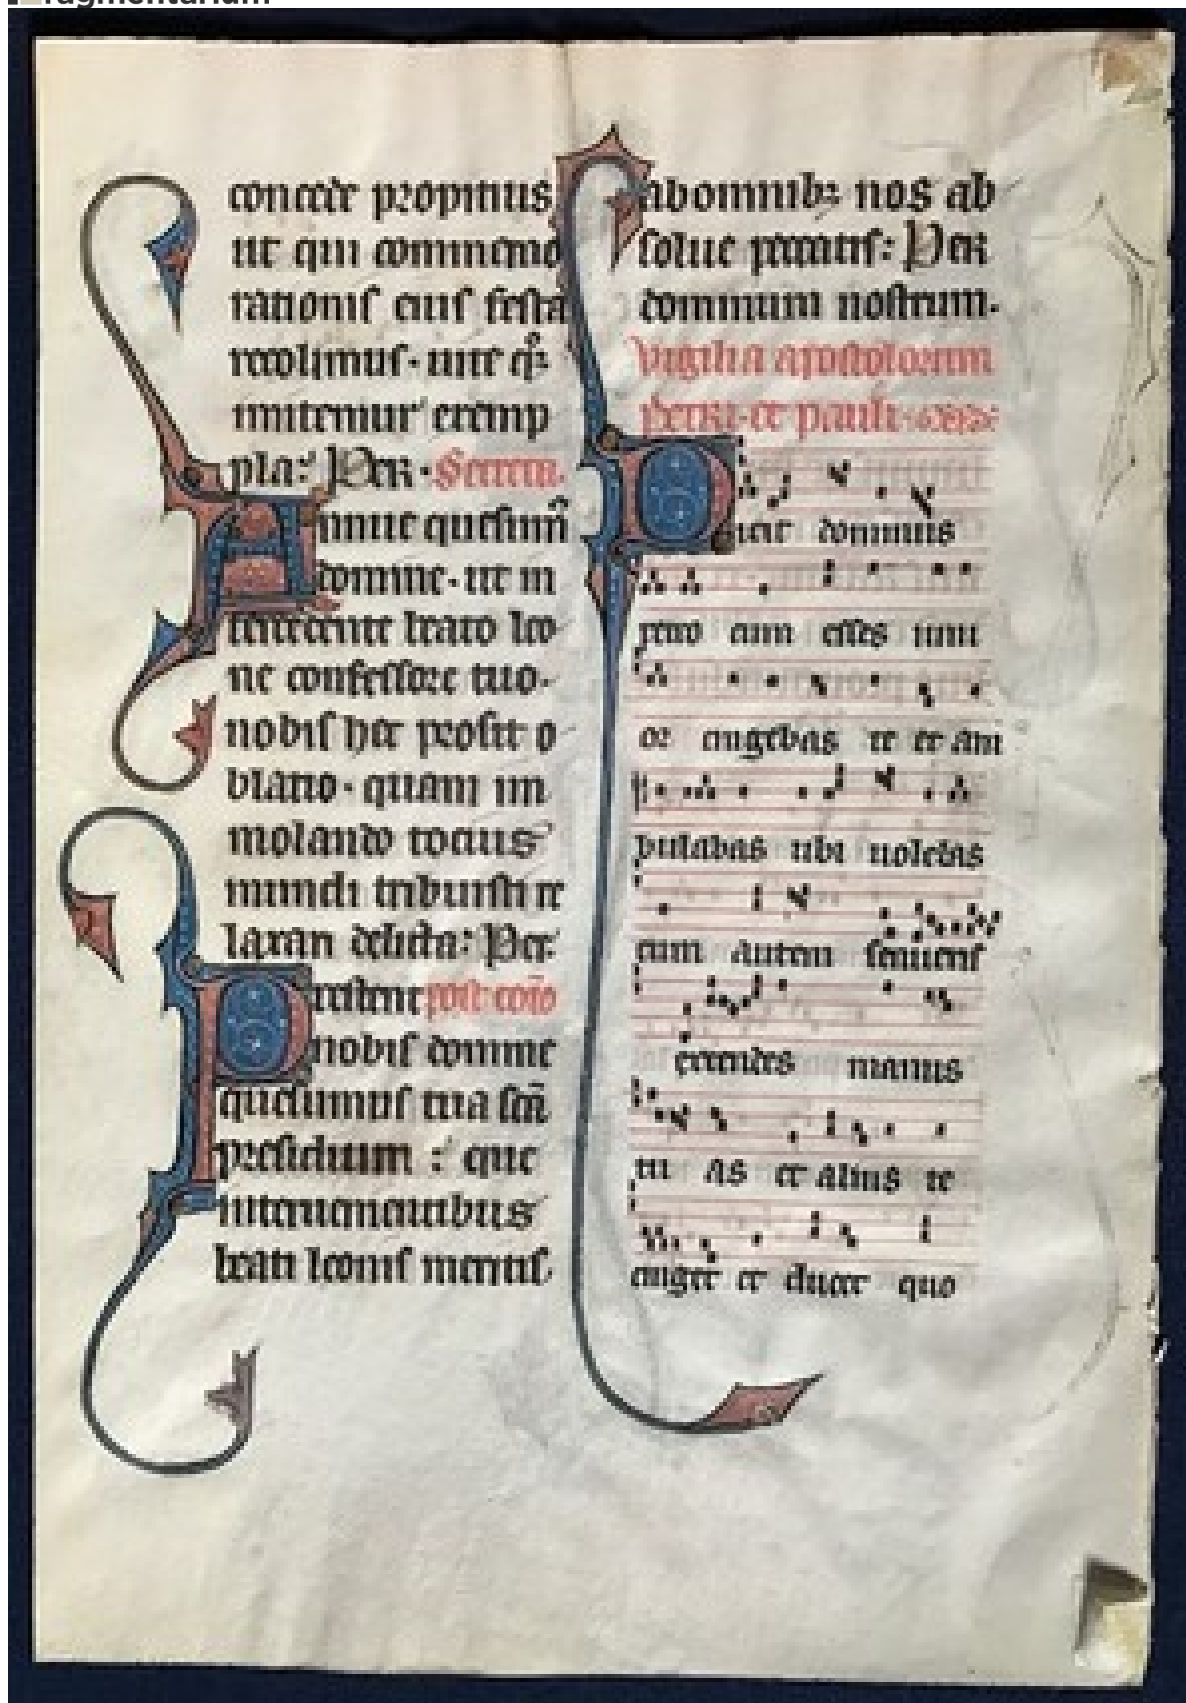 fragmentarium
concede propitius
ut qui commemo
rationis eius festa
recolimus· uite q̄ꝫ
imitemur exemp
pla: Per· Secreta.
Annue quesum̄
domine· ut in
tercedente beato leo
ne confessore tuo·
nobis hec prosit o
blatio· quam im
molando tocius
mundi tribuisti re
laxari delicta: Per
Prestent post com̄
nobis domine
quesumus tua scā
presidium : que
interuenientibus
beati leonis meritis
ab omnibꝫ nos ab
solue peccatis: Per
dominum nostrum·
Vigilia apostolorum
Petri· et pauli·
Dicit dominus
petro cum esses iuni
or cingebas te et am
bulabas ubi uolebas
cum autem senueris
extendes manus
tu as et alius te
cinget et ducet quo